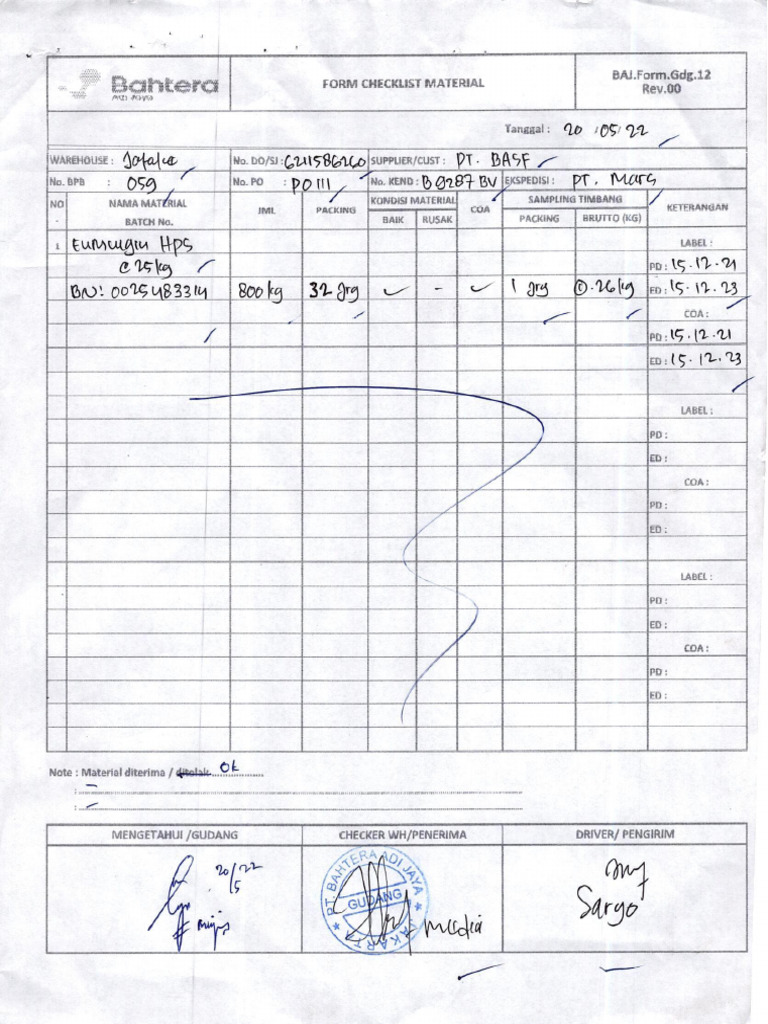 Bahtera
Adi Jaya
FORM CHECKLIST MATERIAL
BAJ.Form.Gdg.12
Rev.00
Tanggal : 20 / 05 / 22
WAREHOUSE :
No. DO/SJ : 6211586260
SUPPLIER/CUST : PT. BASF
No. BPB : 059
No. PO : PO111
No. KEND : B 9287 BV
EKSPEDISI : PT. Mars
NO
NAMA MATERIAL
BATCH No.
JML
PACKING
KONDISI MATERIAL
BAIK
RUSAK
COA
SAMPLING TIMBANG
PACKING
BRUTTO (KG)
KETERANGAN
1 Eumulgin HPS
@ 25kg
BN: 0025483314 800 kg 32 Jrg ✓ - ✓ 1 Jrg @. 26 kg
LABEL :
PD : 15.12.21
ED : 15.12.23
COA :
PD : 15.12.21
ED : 15.12.23
LABEL :
PD :
ED :
COA :
PD :
ED :
LABEL :
PD :
ED :
COA :
PD :
ED :
Note : Material diterima / ditolak OK
: -
: -
MENGETAHUI /GUDANG
CHECKER WH/PENERIMA
DRIVER/ PENGIRIM
20/5 22
PT. BAHTERA ADI JAYA
GUDANG
JAKARTA
Saryo